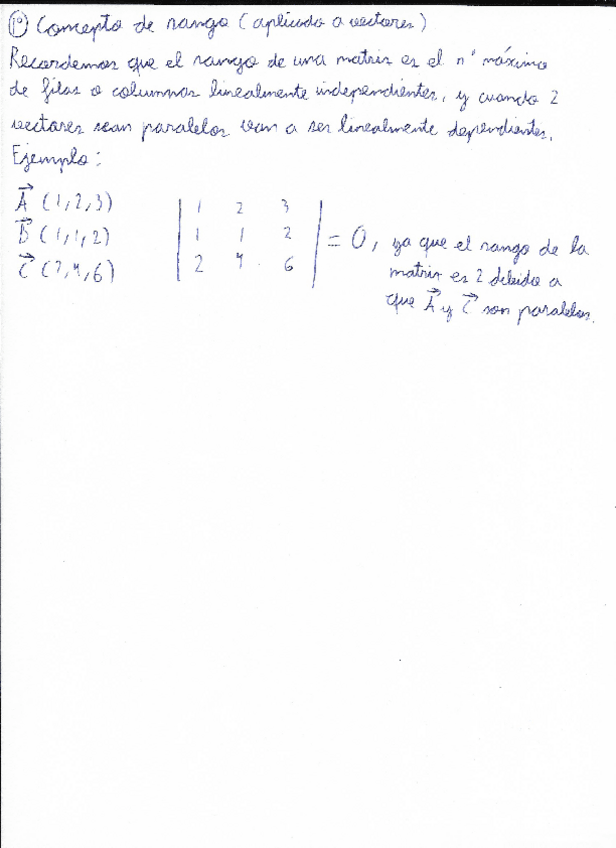 1º) Concepto de rango (aplicado a vectores)
Recordemos que el rango de una matriz es el nº máximo
de filas o columnas linealmente independientes, y cuando 2
vectores sean paralelos van a ser linealmente dependientes.
Ejemplo:
A (1,2,3)
B (1,1,2)
C (2,4,6)
| 1 2 3 |
| 1 1 2 |
| 2 4 6 |
= 0, ya que el rango de la
matriz es 2 debido a
que A y C son paralelos.